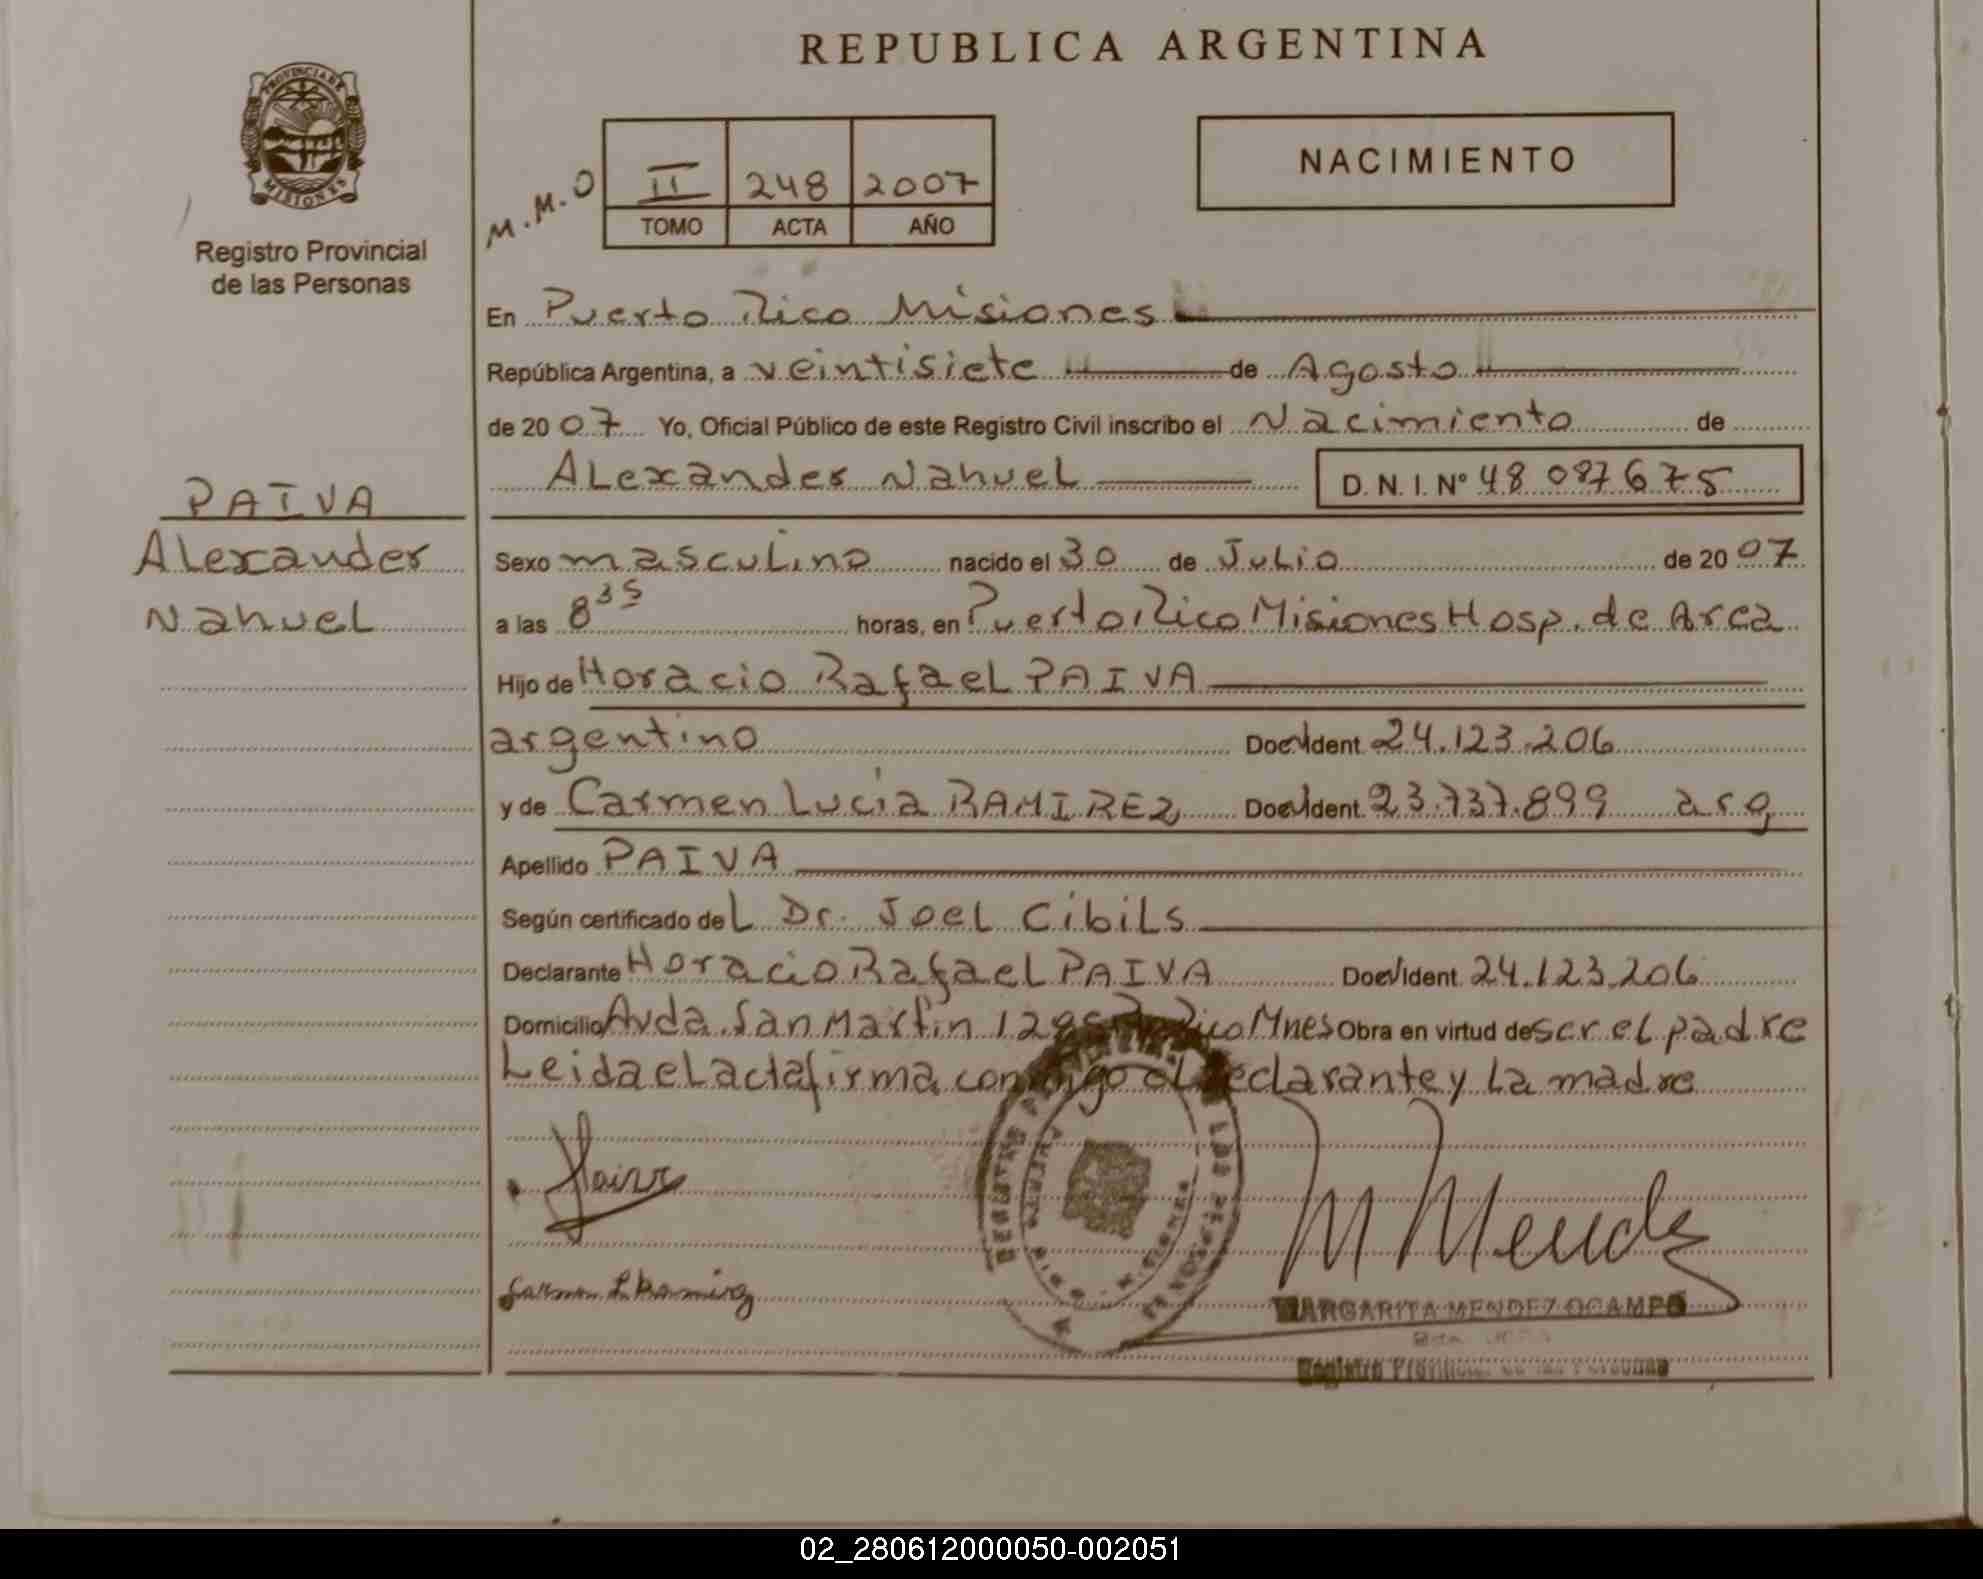 REPUBLICA ARGENTINA
PROVINCIA DE
MISIONES
Registro Provincial
de las Personas
M.M.O
II 248 2007
TOMO ACTA AÑO
NACIMIENTO
En Puerto Rico Misiones
República Argentina, a veintisiete de Agosto
de 2007 Yo, Oficial Público de este Registro Civil inscribo el Nacimiento de
Alexander Nahuel D.N.I. Nº 48 087675
PAIVA
Alexander
Nahuel
Sexo masculino nacido el 30 de Julio de 2007
a las 8 35 horas, en Puerto Rico Misiones Hosp. de Area
Hijo de Horacio Rafael PAIVA
argentino Doc. Ident. 24.123.206
y de Carmen Lucia RAMIREZ Doc. Ident. 23.737.899 arg
Apellido PAIVA
Según certificado del Dr. Joel Cibils
Declarante Horacio Rafael PAIVA Doc. Ident. 24.123.206
Domicilio Avda. San Martin Rico Mnes Obra en virtud de ser el padre
Leida el acta firma conmigo el declarante y la madre
Carmen L Ramirez
M Mendez
MARGARITA MENDEZ OCAMPO
Registro Provincial de las Personas
02_280612000050-002051